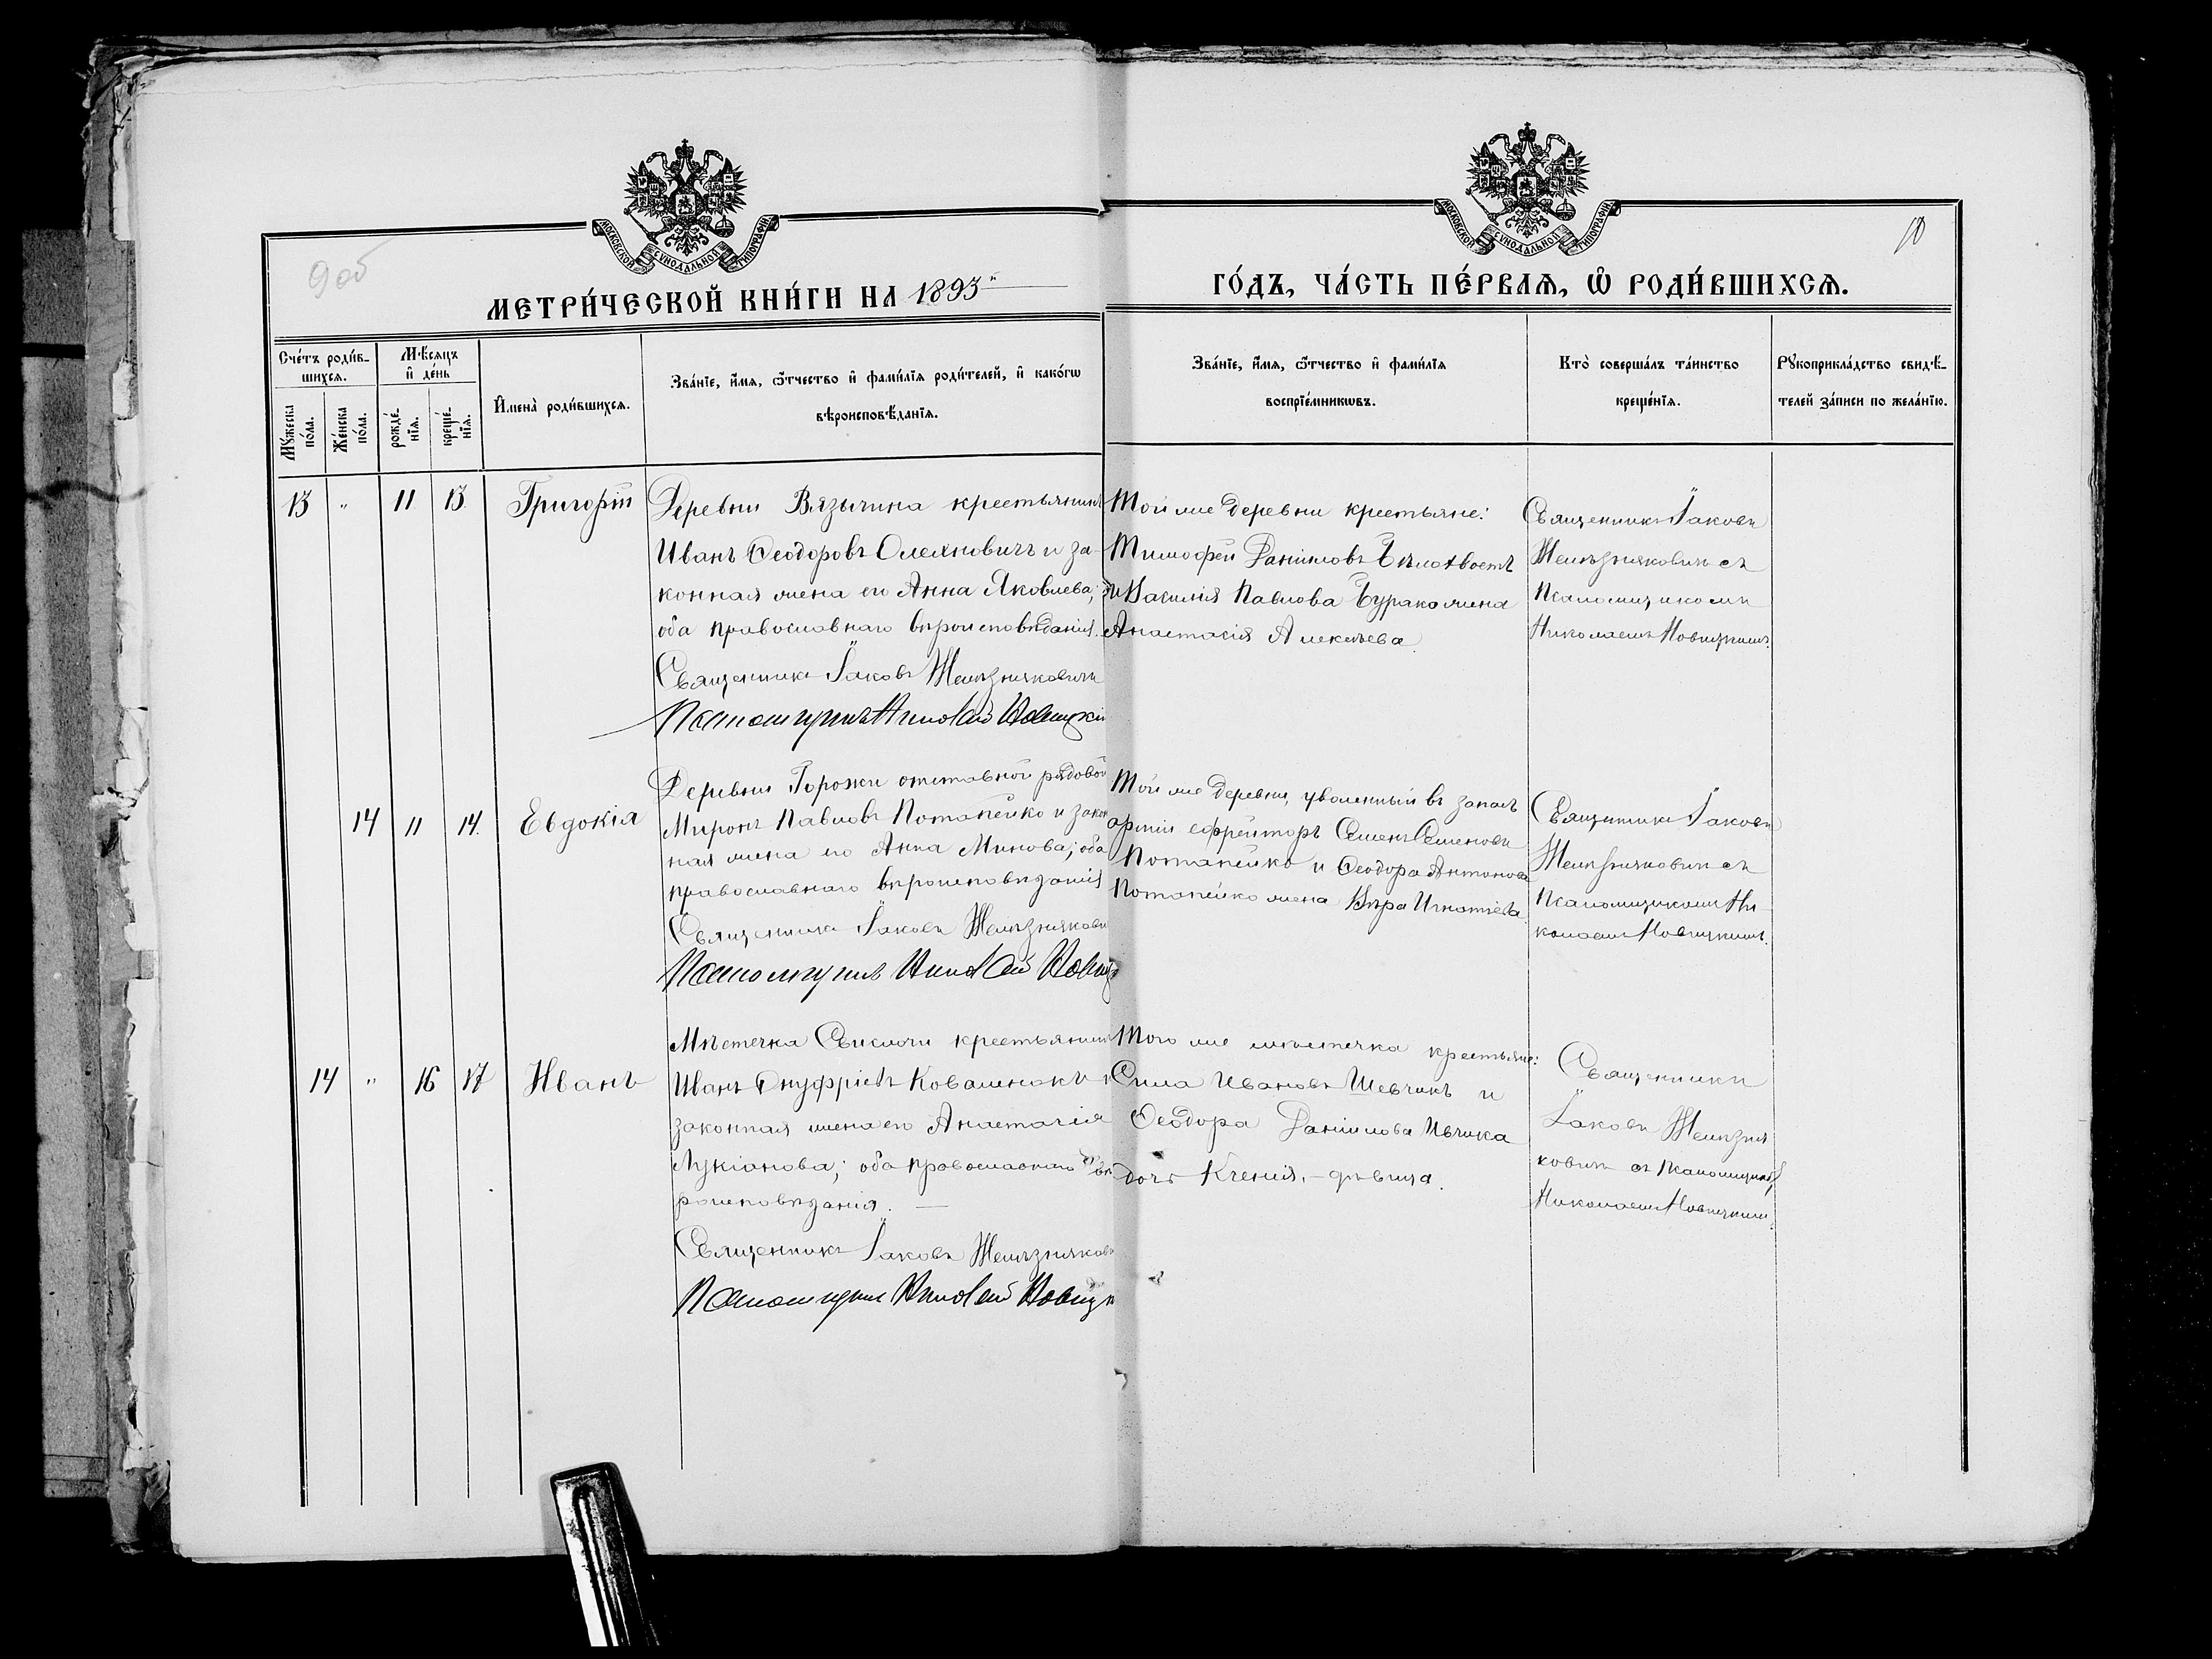 9об
10
МОСКОВСКОЙ СѴНОДАЛЬНОЙ ТИПОГРАФІИ
МОСКОВСКОЙ СѴНОДАЛЬНОЙ ТИПОГРАФІИ
МЕТРИ́ЧЕСКОЙ КНИ́ГИ НА 1893й
ГО́ДЪ, ЧА́СТЬ ПЕ́РВАѦ, Ѡ҆ РОДИ́ВШИХСѦ.
Сче́тъ роди́в-
шихсѧ.
Мꙋ́жеска по́ла.
Же́нска по́ла.
Мѣ́сѧцъ и҆ де́нь
рожде́нїѧ.
креще́нїѧ.
И҆мена̀ роди́вшихсѧ.
Зва́нїе, и҆́мѧ, ѻ҆́тчество и҆ фами́лїѧ роди́телей, и҆ како́гѡ
вѣроисповѣ́данїѧ.
Зва́нїе, и҆́мѧ, ѻ҆́тчество и҆ фами́лїѧ
воспрїе́мникѡвъ.
Кто̀ соверша́лъ та́инство
креще́нїѧ.
Рꙋкоприкла́дство свидѣ́-
телей за́писи по жела́нїю.
13 „ 11 13. Григорій
Деревни Вязычина крестьянинъ
Иванъ Ѳеодоровъ Олехновичъ и за-
конная жена его Анна Яковлева;
оба православнаго вѣроисповѣданія.
Священникъ Іаковъ Желѣзняковичъ
Псаломщикъ Николай Новицкій
Той же деревни крестьяне:
Тимофей Даниловъ Бѣлохвостъ
и Василія Павлова Бурака жена
Анастасія Алексѣева.
Священникъ Іаковъ
Желѣзняковичъ съ
псаломщикомъ
Николаемъ Новицкимъ.
14 11 14. Евдокія
Деревни Горожи отставной рядовой
Миронъ Павловъ Потапейко и закон
ная жена его Анна Минова; оба
православнаго вѣроисповѣданія
Священникъ Іаковъ Желѣзняковичъ
Псаломщикъ Николай Новицк
Той же деревни, уволенный въ запасъ
арміи ефрейторъ Семенъ Семеновъ
Потапейко и Ѳеодора Антонова
Потапейко жена Вѣра Игнатіева
Священникъ Іаковъ
Желѣзняковичъ съ
псаломщикомъ Ни-
колаемъ Новицкимъ.
14 „ 16 17 Иванъ
Мѣстечка Свислочи крестьянинъ
Иванъ Онуфріевъ Коваленокъ и
законная жена его Анастасія
Лукіанова; оба православнаго вѣ
роисповѣданія. —
Священникъ Іаковъ Желѣзнякови
Псаломщикъ Николай Новицк
Того же мѣстечка крестьяне:
Сила Ивановъ Шевчикъ и
Ѳеодора Данилова Ивчика
дочь Ксенія, – дѣвица.
Священникъ
Іаковъ Желѣзня
ковичъ съ псаломщикомъ
Николаемъ Новицкимъ.